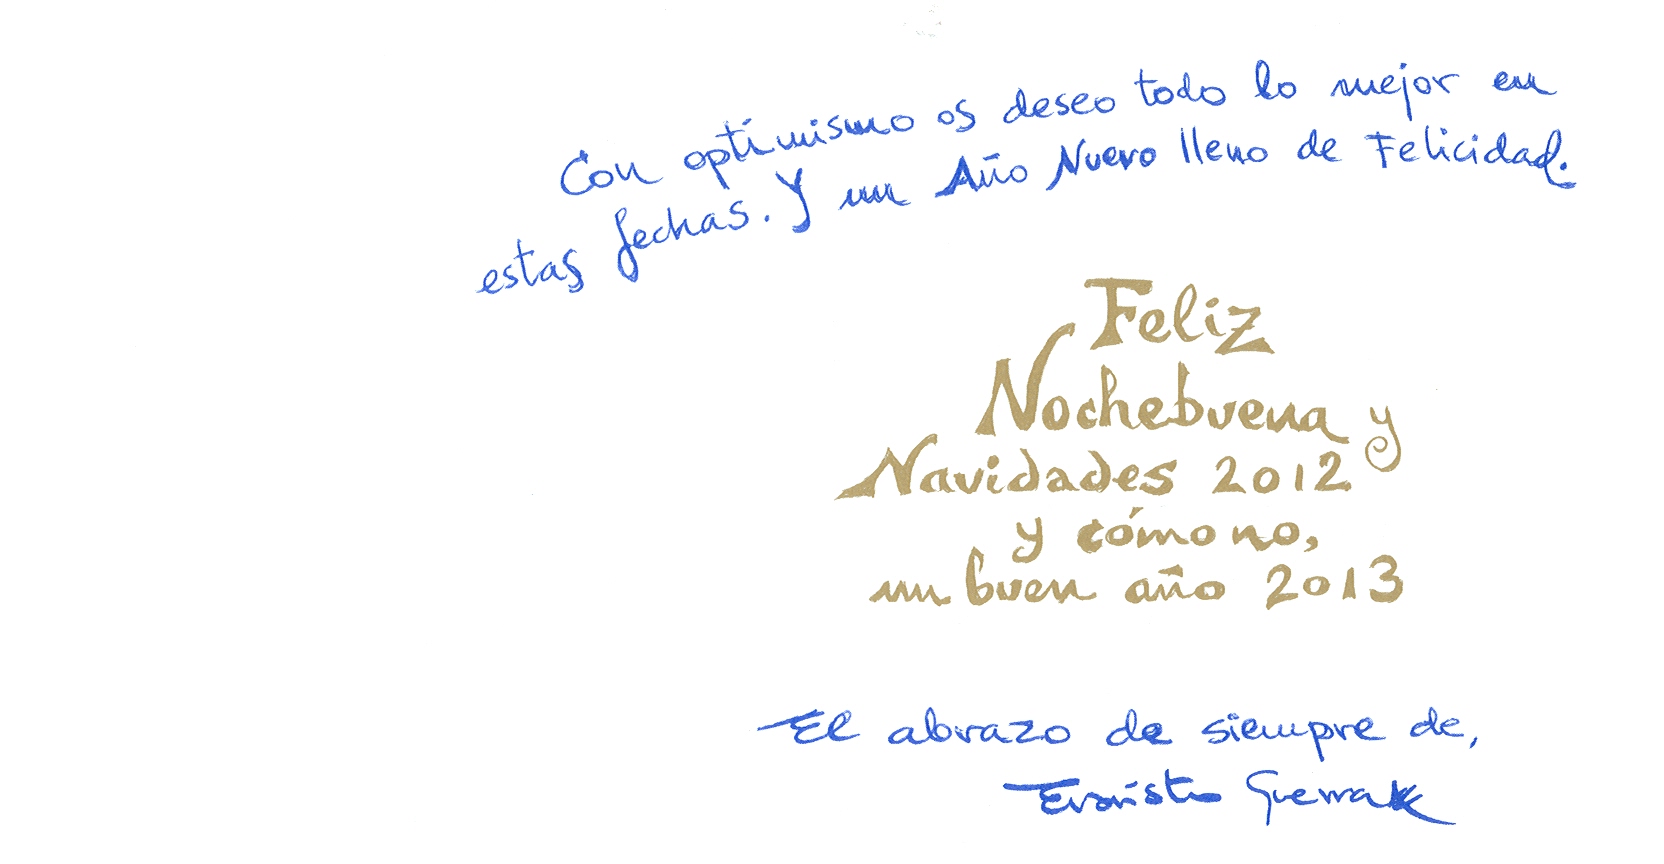 Con optimismo os deseo todo lo mejor en
estas fechas. Y un Año Nuevo lleno de Felicidad.
Feliz
Nochebuena y
Navidades 2012
y cómo no,
un buen año 2013
El abrazo de siempre de,
Evaristo Guerra